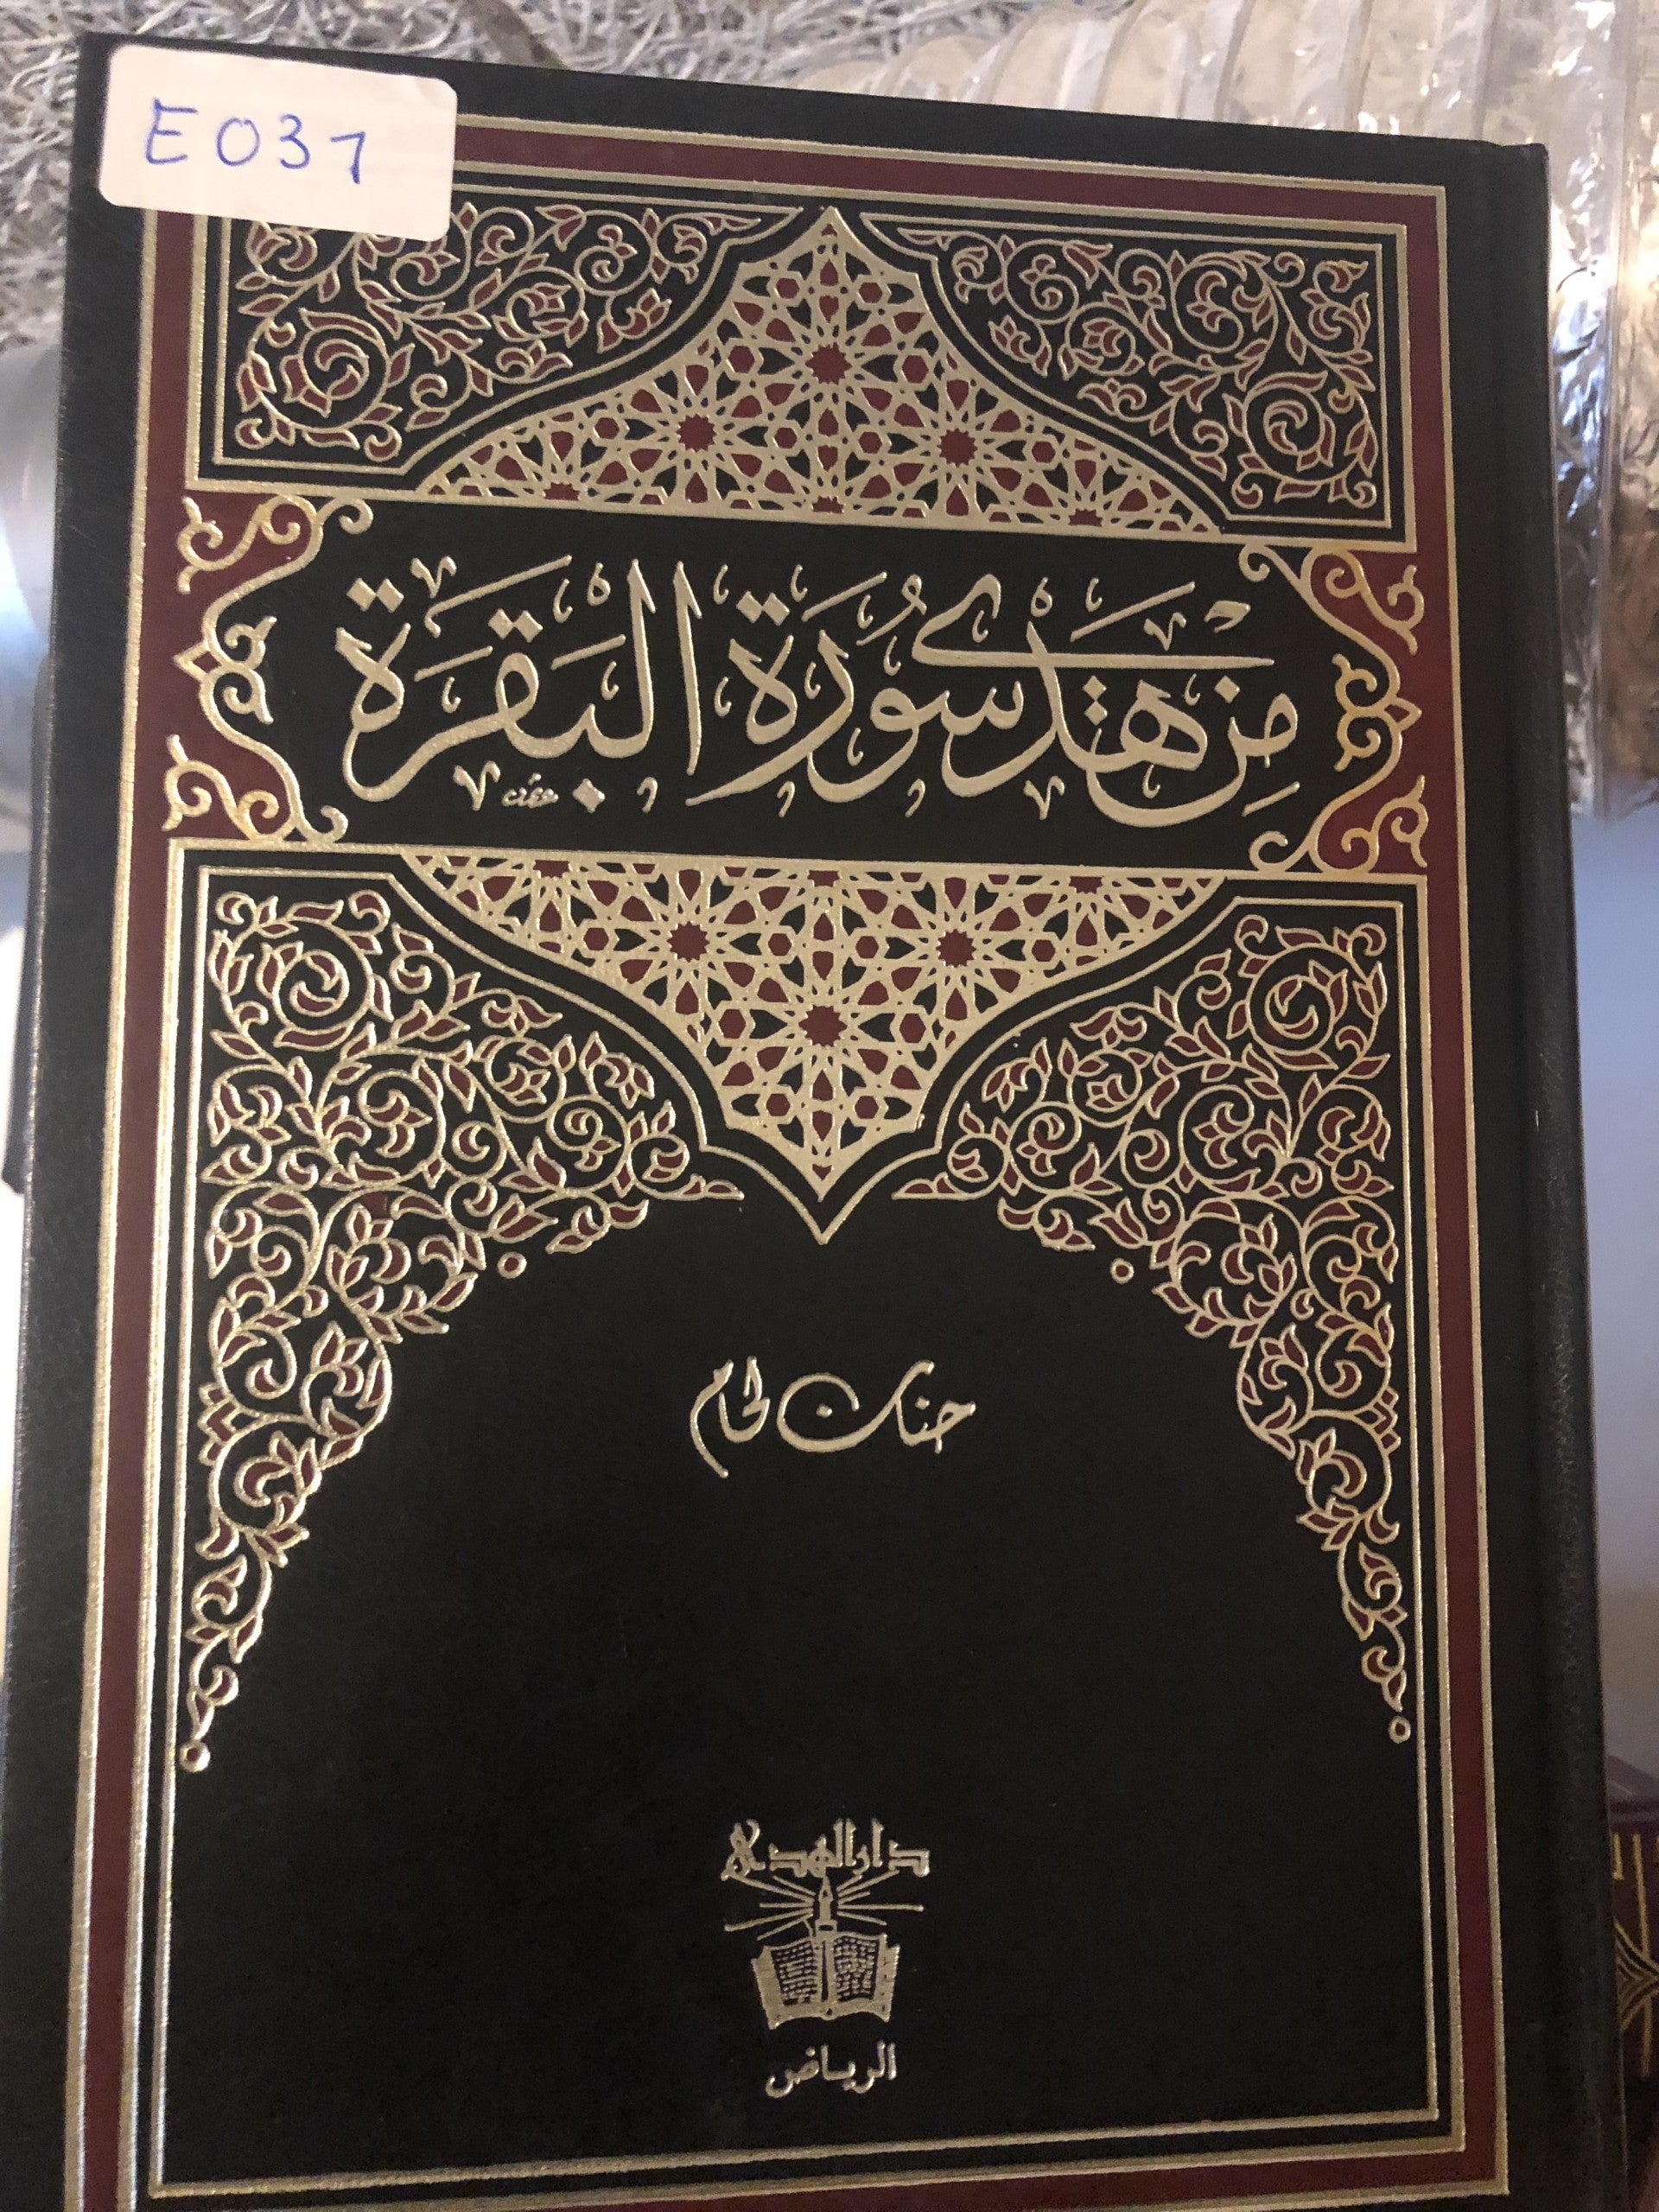 E037
مِنْ هَدْيِ سُورَةِ البَقَرَةِ
حنان لحام
دار الهدى
الرياض